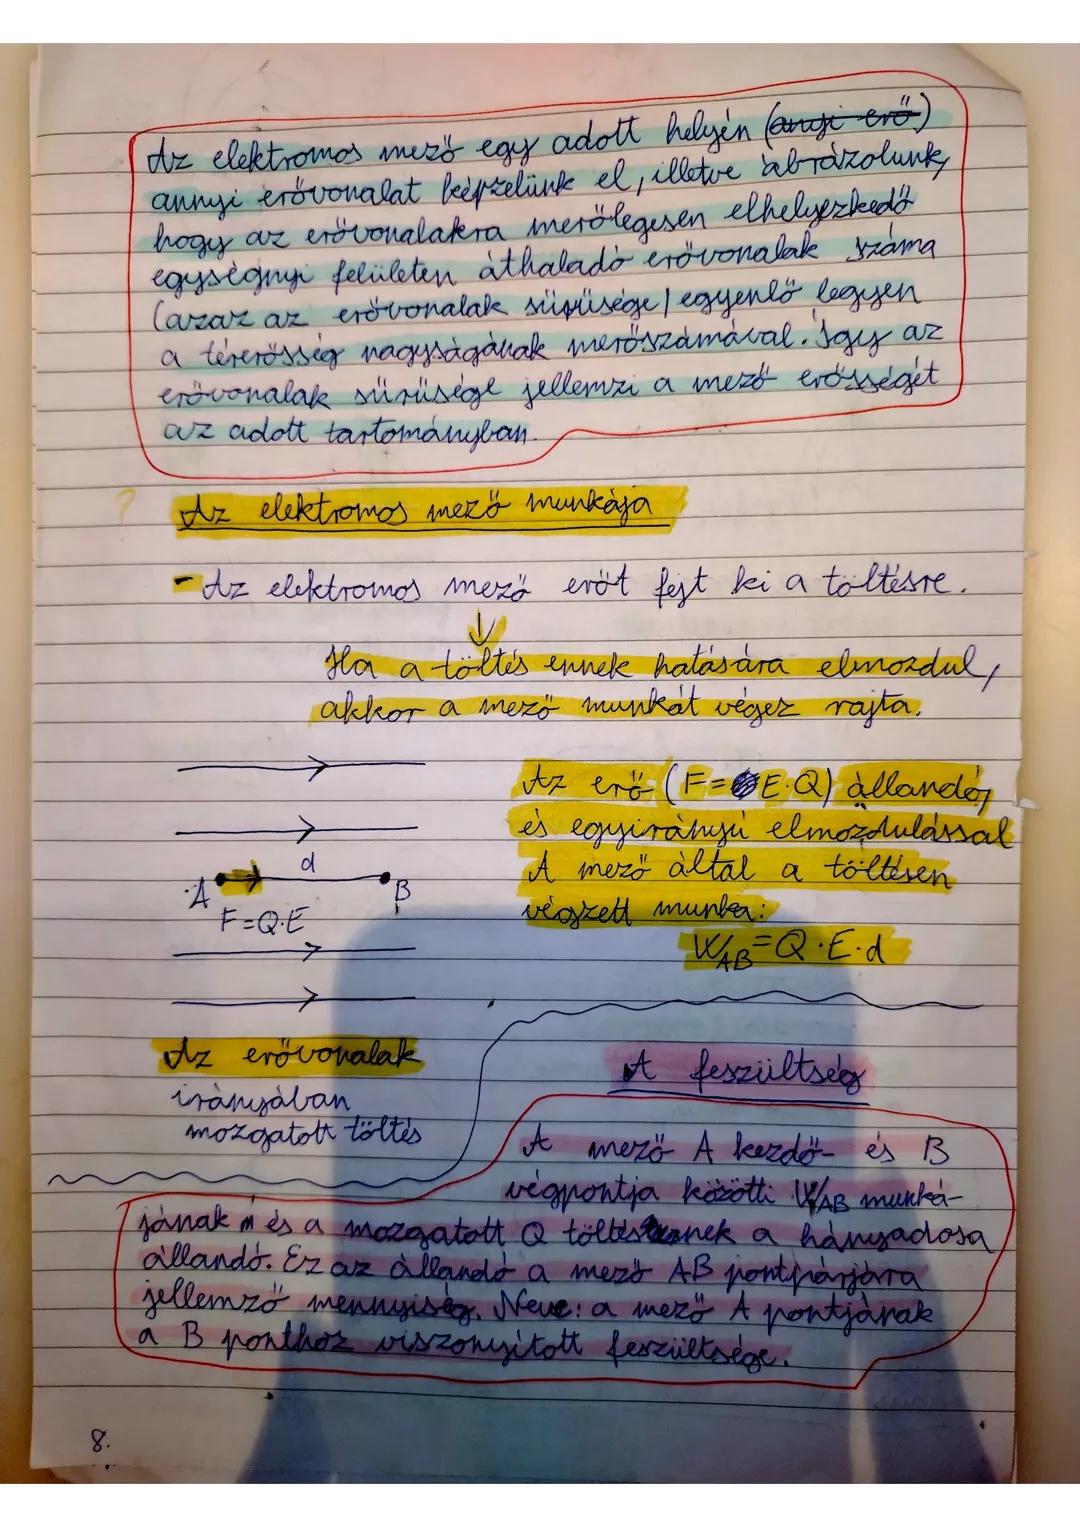 Az elektromos mező egy adott helyén (annyi erő)
annyi erővonalat képzelünk el, illetve ábrázolunk,
hogy az erővonalakra merőlegesen elhelyezkedő
egységnyi felületen áthaladó erővonalak száma
(azaz az erővonalak sűrűsége) egyenlő legyen
a térerősség nagyságának merőszámával. Így az
erővonalak sűrűsége jellemzi a mező erősségét
az adott tartományban.
? Az elektromos mező munkája
- Az elektromos mező erőt fejt ki a töltésre.
↓
Ha a töltés ennek hatására elmozdul,
akkor a mező munkát végez rajta.
Az erő (F= E·Q) állandó,
és egyirányú elmozdulással
A mező által a töltésen
végzett munka:
W_AB = Q·E·d
d
A B
F=Q·E
Az erővonalak
irányában
mozgatott töltés
A feszültség
A mező A kezdő- és B
végpontja közötti W_AB munká-
jának és a mozgatott Q töltésnek a hányadosa
állandó. Ez az állandó a mező AB pontpárjára
jellemző mennyiség. Neve: a mező A pontjának
a B ponthoz viszonyított feszültsége.
8.